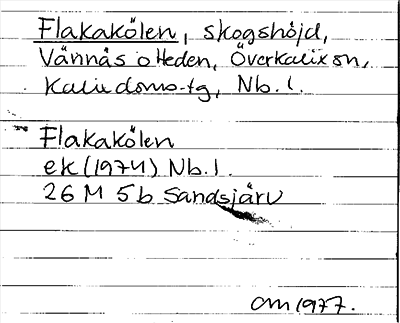 Flakakölen, skogshöjd,
Vännäs o Heden, Överkalix sn,
Kalix doms-tg, Nb. l.
Flakakölen
ek (1974) Nb. l.
26 M 5b Sandsjärv
om 1977.